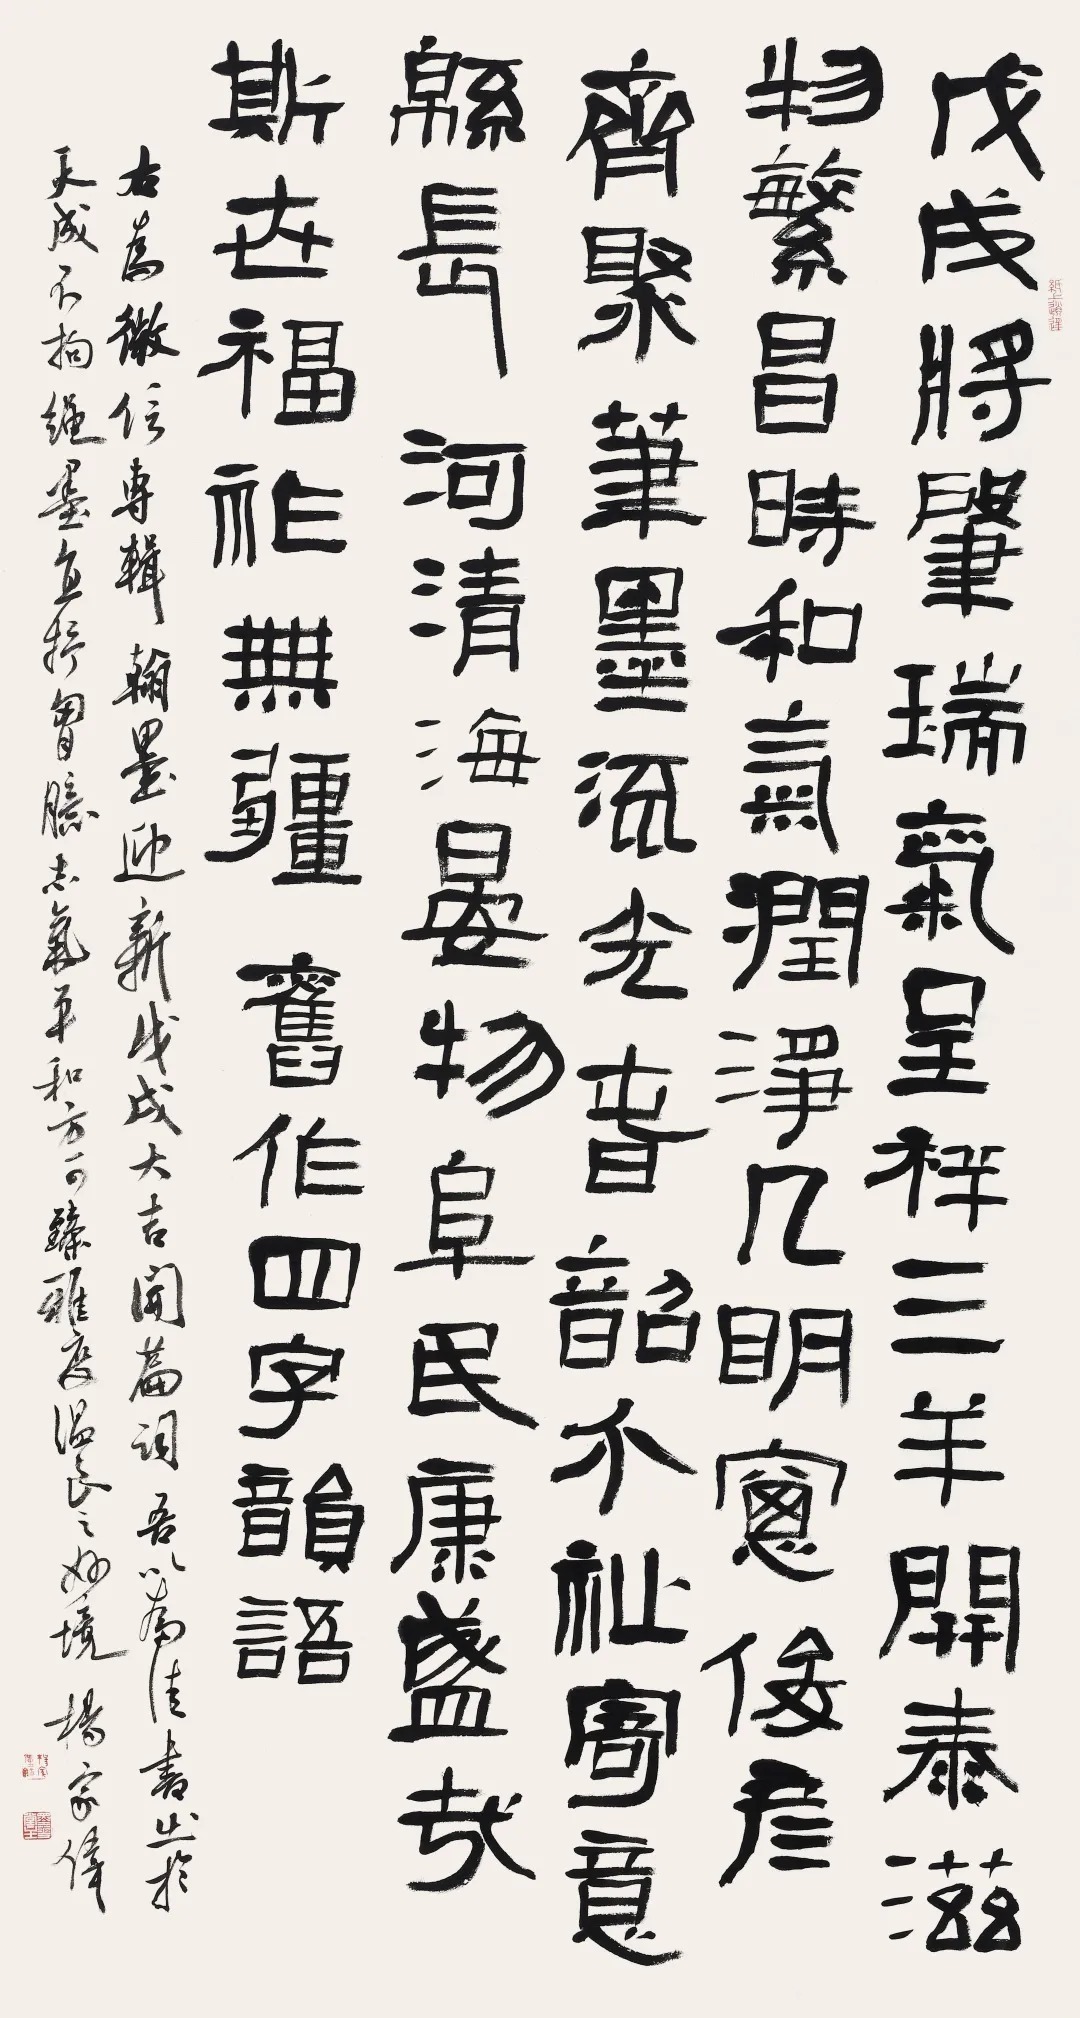 戊戌將肇瑞氣呈祥三羊開泰滋
物繁昌時和氣潤淨几明窗倐彥
齊聚筆墨流光耆韶介祉寄意
緜長河清海晏物阜民康盛哉
斯世福祚無疆舊作四字韻語
右為微信專輯翰墨迎新戊戌大吉開篇詞吾以為佳書出於
天成不拘繩墨直抒胷臆志氣平和方可臻雅度溫良之妙境楊家偉